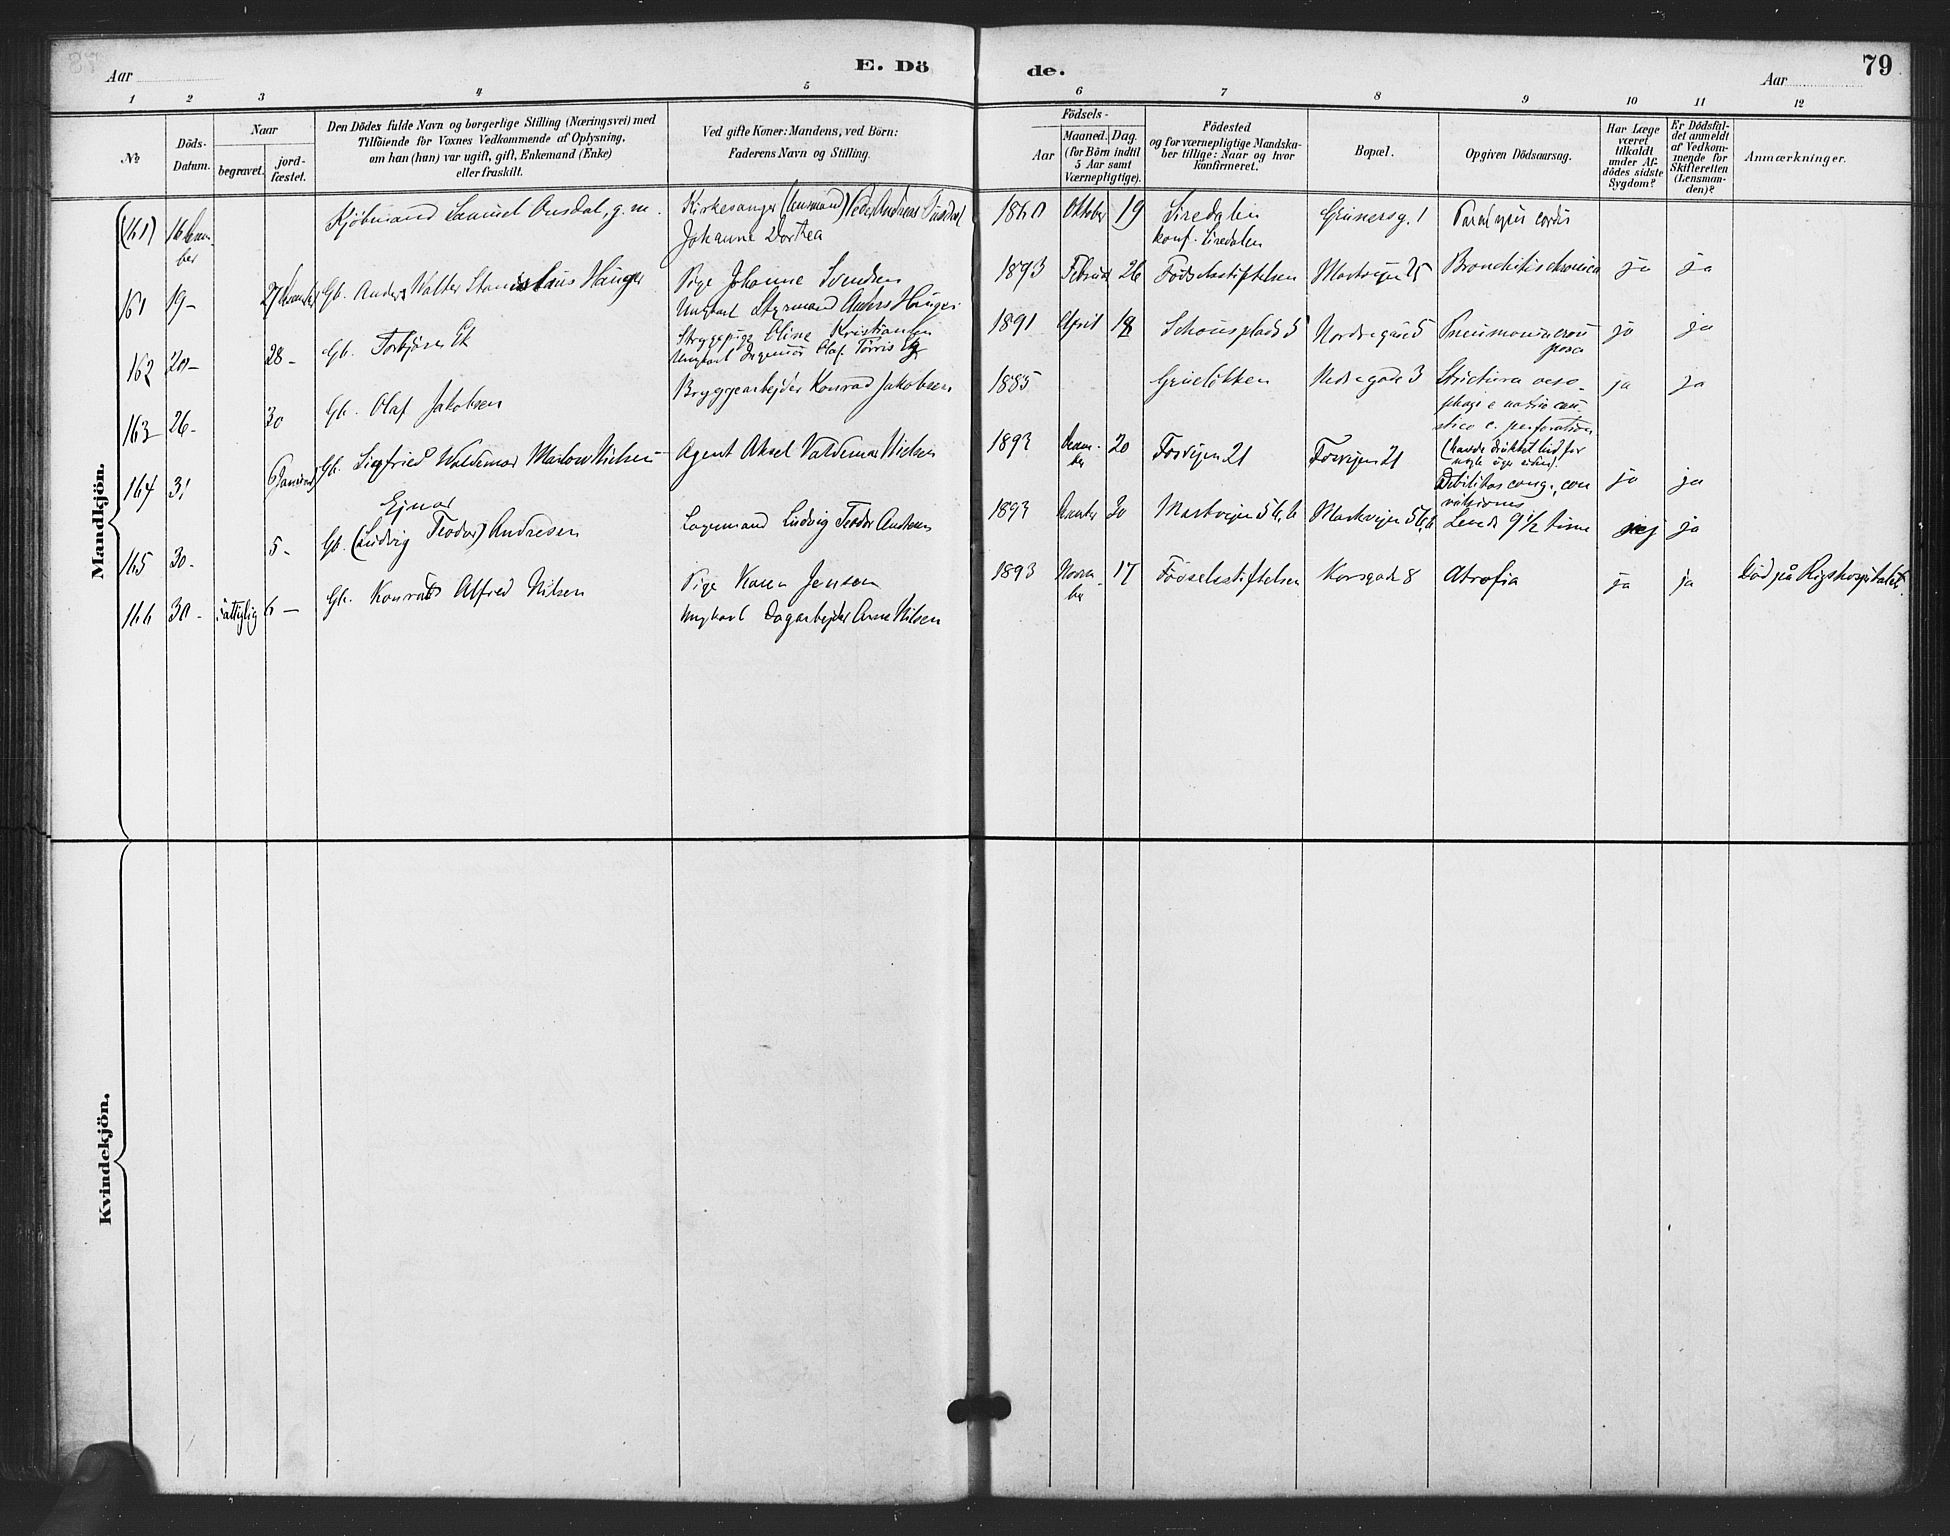 E. Dö de.
79
Aar
Aar
1 2 3 4 5 6 7 8 9 10 11 12
№
Döds-Datum.
Naar
begravet.
jord-fæstet.
Den Dödes fulde Navn og borgerlige Stilling (Næringsvei) med
Tilföiende for Voxnes Vedkommende af Oplysning,
om han (hun) var ugift, gift, Enkemand (Enke)
eller fraskilt.
Ved gifte Koner: Mandens, ved Börn:
Faderens Navn og Stilling.
Födsels-
Aar
Maaned. Dag.
(for Börn indtil
5 Aar samt
Værnepligtige).
Födested
og for værnepligtige Mandska-
ber tillige: Naar og hvor
konfirmeret.
Bopæl.
Opgiven Dödsaarsag.
Har Læge
været
tilkaldt
under Af-
dödes sidste
Sygdom?
Er Dödsfal-
det anmeldt
af Vedkom-
mende for
Skifteretten
(Lensman-
den)?
Anmærkninger.
Mandkjön.
(161) 16 Kjöbmand Samuel Ousdal, g. m. Kirkesanger
Johanne Dortea
1860 Oktober 19 Siredalen Grünersg. 1 cordis
konf. Siredalen
161 19 – 27 Gb. Anders Valter Stanislaus Hauger Pige Johanne Svendsen
Ungkarl Styrmand Anders Hauger
1893 Februar 26 Födselsstiftelsen Markvejen 25 Bronchitis chronica ja ja
162 20 – 28 – Gb. Torbjörn Ek Strygepige Oline Kristiansen
Ungkarl Ingeniör Olaf Törris Ek
1891 April 18 Schousplads 5 Nordregade 5 Pneumonia crou
posa ja ja
163 26 – 30 Gb. Olaf Jakobsen Bryggearbejder Konrad Jakobsen
1885 Grüelökken Nedregade 3 Strictura oeso-
phagi e
c. perforation
ja ja
164 31 6 Januar Gb. Sigfried Waldemar Marlow Nielsen Agent Aksel Valdemar Nielsen
1893 Decem-
ber 20 Fossvejen 21 Fossvejen 21
Debilitas cong., con
vulsiones ja ja
165 30 – 5 – Ejnar
Gb. (Ludvig Teodor) Andresen Lagermand Ludvig Teodor Andresen
1893 30 Markvejen 56, b Markvejen 56, b Levede 9 1/2 time nej ja
166 30 – fattiglig 6 – Gb. Konrad Alfred Nilsen Pige Karen Jensen
Ungkarl Dagarbejder Arne Nilsen
1893 Novem
ber 17 Födselsstiftelsen Korsgade 8 Atrofia ja ja Död på Rigshospitalet.
Kvindekjön.